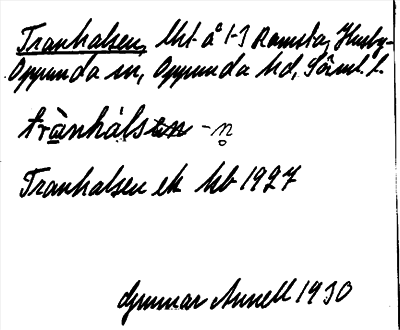 Tranhalsen, lht å 1-3 Ramsta, Husby-
Oppunda sn, Oppunda hd, Sörml. l.
trànhálsen - n̥
Tranhalsen ek kb 1927
Gunnar Annell 1930